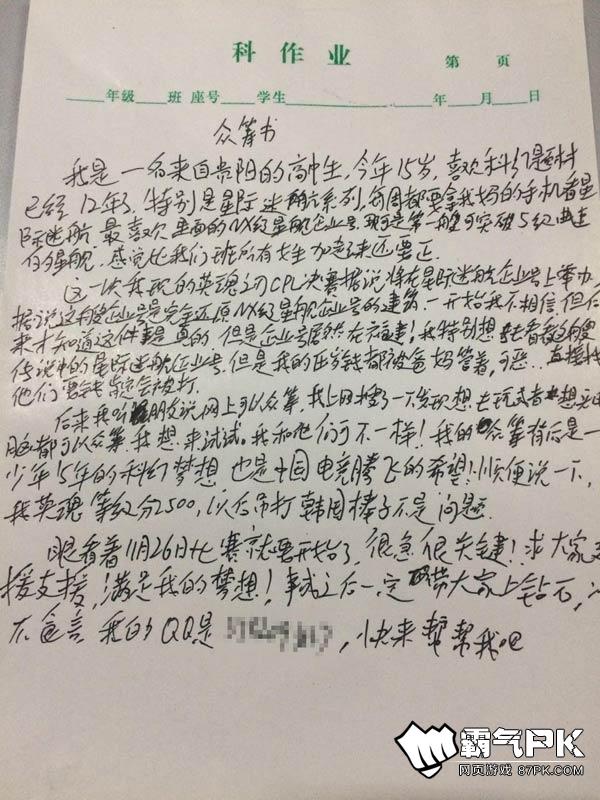 科作业 第 页
年级 班 座号 学生 年 月 日
众筹书
我是一名来自贵阳的高中生,今年15岁,喜欢科幻题材
已经12年了,特别是星际迷航系列,每周都要拿我妈的手机看星
际迷航,最喜欢里面的NX级星舰企业号,那可是第一艘可突破5级曲速
的星舰,感觉比我们班所有女生加起来还要正.
这一次英魂之刃CPL决赛据说将在星际迷航企业号上举办,
据说这艘企业号是完全还原NX级星舰企业号的建筑.一开始我不相信,但后
来才知道这件事是真的,但是企业号居然在福建!我特别想去看看这艘
传说中的星际迷航企业号,但是我的压岁钱都被爸妈管着,可恶..直接找
他们要钱会被打.
后来我听朋友说网上可以众筹,我上网搜了一下发现想去玩或者想买电
脑都可以众筹,我想来试试.我和他们可不一样!我的众筹背后是一
少年5年的科幻梦想,也是中国电竞腾飞的希望!顺便说一下,
我英魂等级分2500,以后吊打韩国棒子不是问题.
眼看着11月26日比赛就要开始了,很急很关键!求大家支
援支援,满足我的梦想!事成之后一定带大家上钻石,
不食言,我的QQ是 ,快来帮帮我吧
霸气PK
网页游戏 87PK.COM